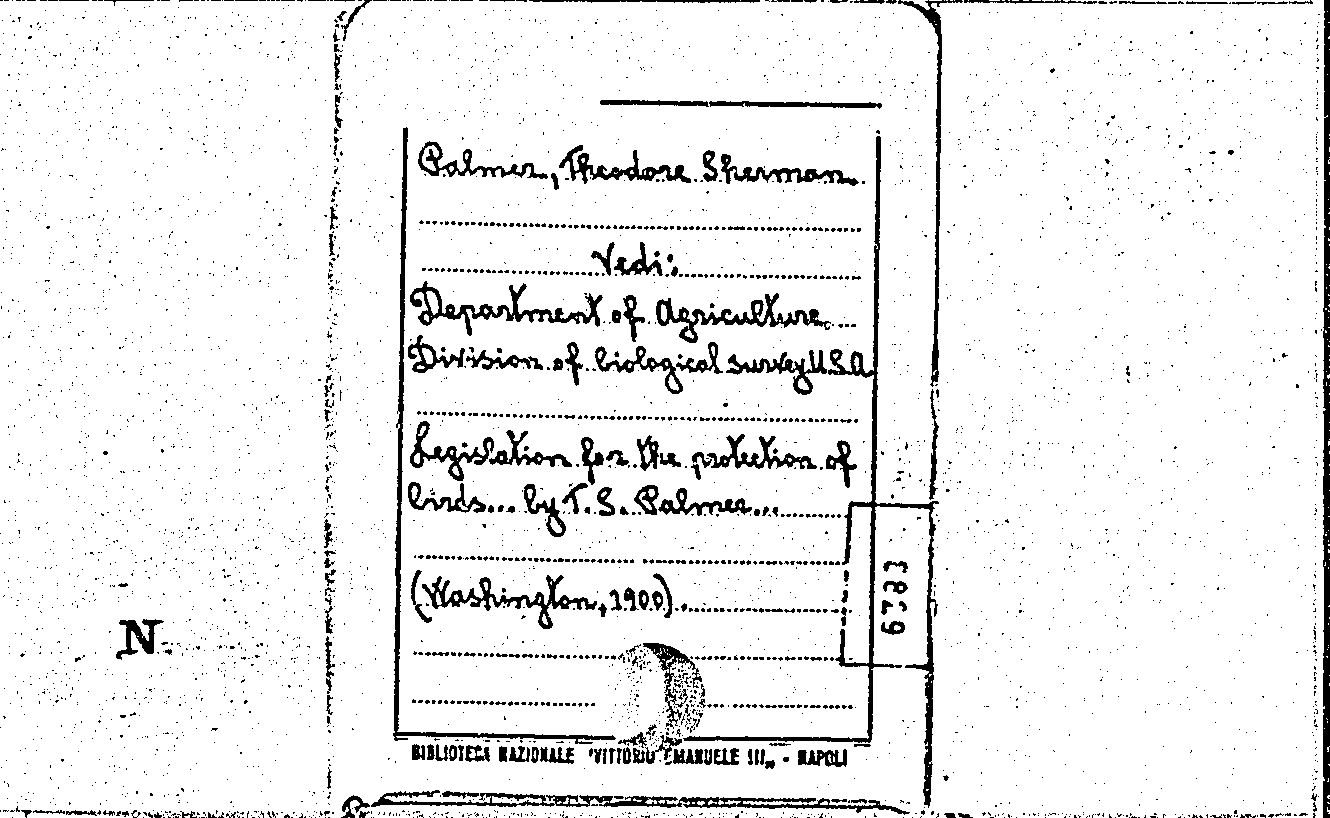 Palmer, Theodore Sherman.
Vedi:
Department of Agriculture
Division of biological survey U.S.A.
Legislation for the protection of
birds... by T. S. Palmer...
(Washington, 1900).
6783
N
BIBLIOTECA NAZIONALE "VITTORIO EMANUELE III„ - NAPOLI